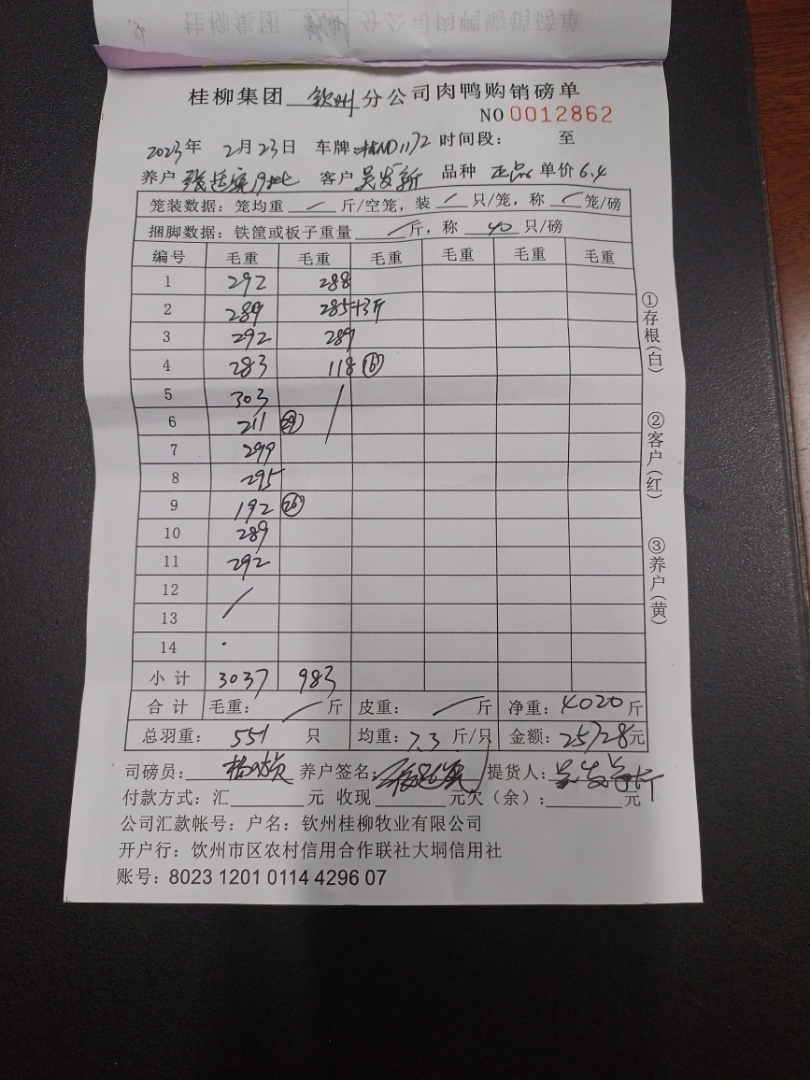 桂柳集团 钦州 分公司肉鸭购销磅单
NO 0012862
2023年 2月23日 车牌: 1172 时间段: 至
养户 客户 吴发新 品种 正品 单价6.4
笼装数据：笼均重 / 斤/空笼，装 / 只/笼，称 / 笼/磅
捆脚数据：铁筐或板子重量 / 斤，称 40 只/磅
编号 毛重 毛重 毛重 毛重 毛重 毛重
1 292 288
2 289 285+3斤
3 292 289
4 283 118 (16)
5 303 /
6 211
7 299
8 295
9 192 (26)
10 289
11 292
12 /
13
14 .
小计 3037 983
合计 毛重: / 斤 皮重: / 斤 净重: 4020斤
总羽重: 551 只 均重: 7.3 斤/只 金额: 25728元
司磅员: 养户签名: 提货人:
付款方式：汇 元 收现 元欠（余）: 元
公司汇款帐号：户名：钦州桂柳牧业有限公司
开户行：钦州市区农村信用合作联社大垌信用社
账号：8023 1201 0114 4296 07
①存根(白)
②客户(红)
③养户(黄)